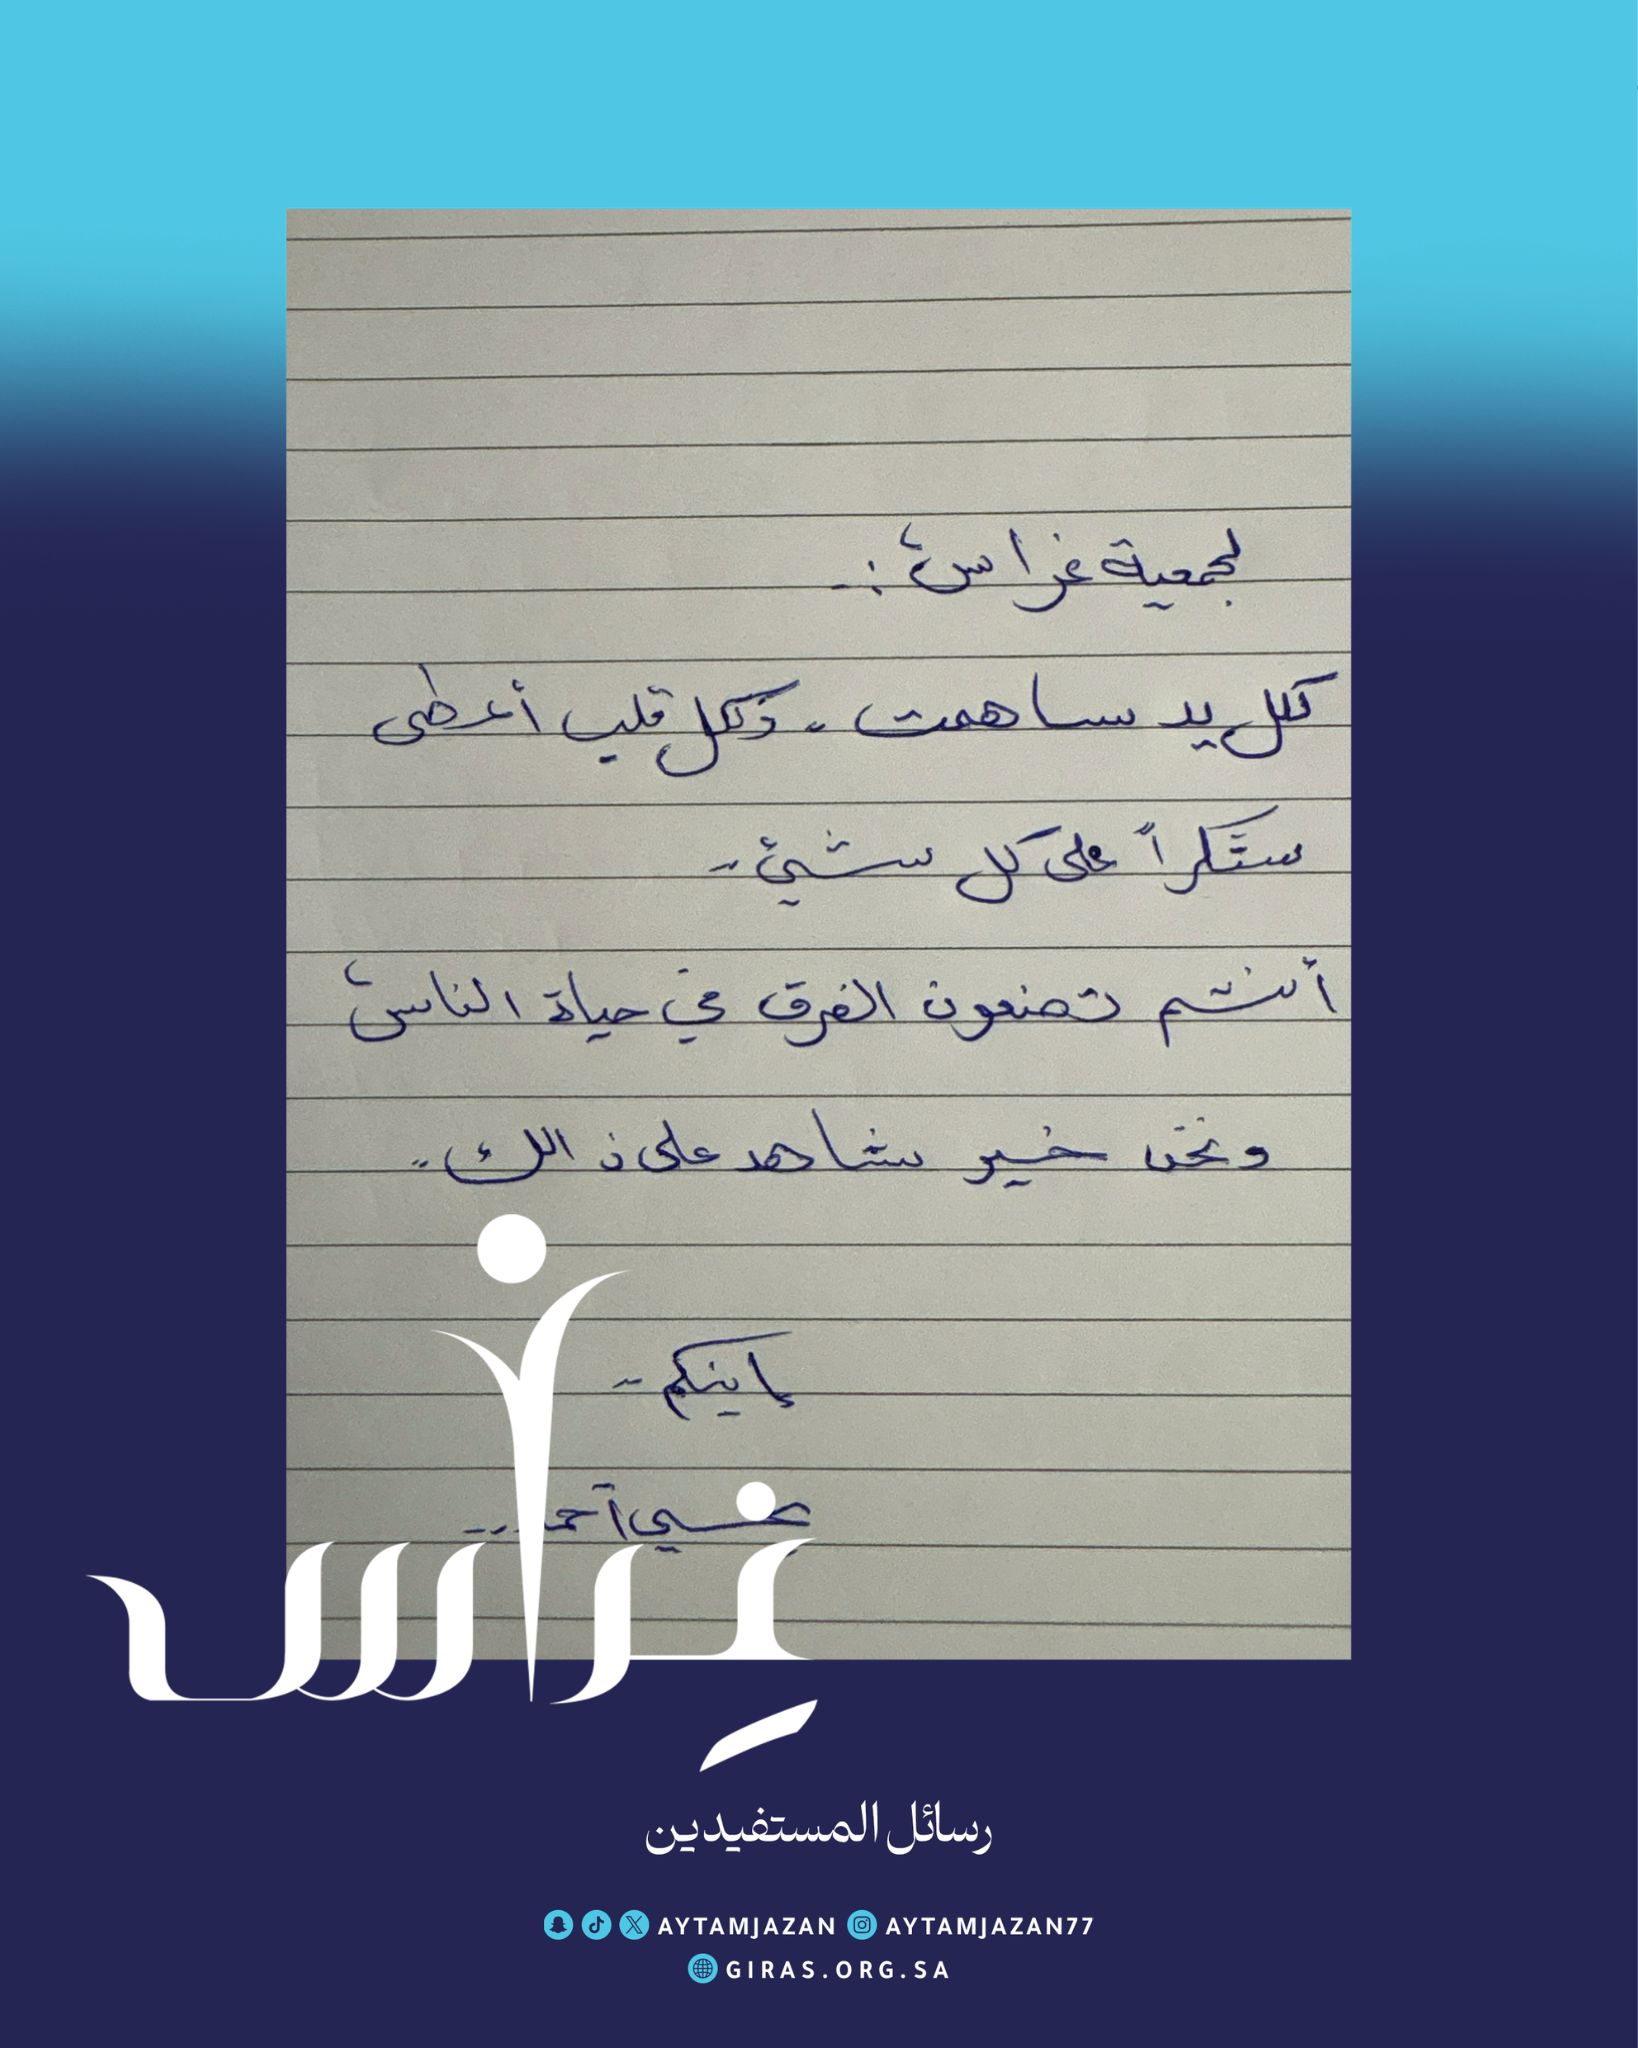 لجمعية غراس :-
لكل يد ساهمت .. ولكل قلب أعطى
شكراً على كل شيئ ..
أنتم تصنعون الفرق في حياة الناس
ونحن خير شاهد على ذالك ..
إبنكم ..
أحمد ...
غراس
رسائل المستفيدين
AYTAMJAZAN AYTAMJAZAN77
GIRAS.ORG.SA